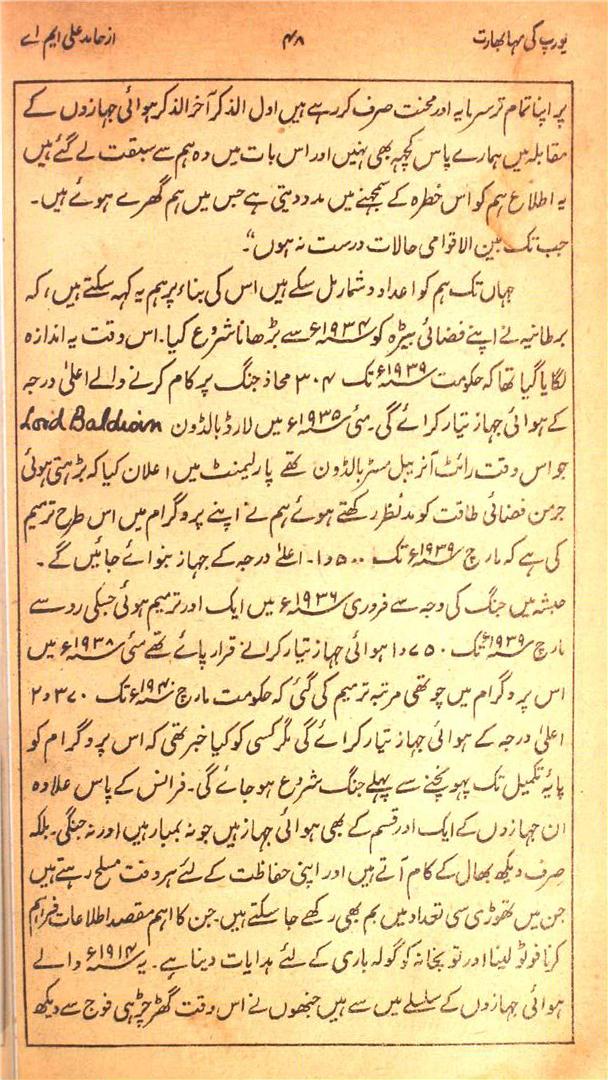 یورپ کی مہابھارت ۴۸ از حامد علی ایم اے
پر اپنا تمام تر سرمایہ اور محنت صرف کر رہے ہیں اول الذکر آخر الذکر ہوائی جہازوں کے
مقابلہ میں ہمارے پاس کچھ بھی نہیں اور اس بات میں وہ ہم سے سبقت لے گئے ہیں
یہ اطلاع ہم کو اس خطرہ کے سمجھنے میں مدد دیتی ہے جس میں ہم گھرے ہوئے ہیں۔
جب تک بین الاقوامی حالات درست نہ ہوں"۔
جہاں تک ہم کو اعداد و شمار مل سکے ہیں اس کی بناء پر ہم یہ کہہ سکتے ہیں، کہ
برطانیہ نے اپنے فضائی بیڑہ کو ۱۹۳۴ء سے بڑھانا شروع کیا۔ اس وقت یہ اندازہ
لگایا گیا تھا کہ حکومت ۱۹۳۹ء تک ۳۰۴ محاذ جنگ پر کام کرنے والے اعلیٰ درجہ
کے ہوائی جہاز تیار کرائے گی۔ مئی ۱۹۳۵ء میں لارڈ بالڈون Lord Baldwin
جو اس وقت رائٹ آنریبل مسٹر بالڈون تھے پارلیمنٹ میں اعلان کیا کہ بڑھتی ہوئی
جرمن فضائی طاقت کو مدنظر رکھتے ہوئے ہم نے اپنے پروگرام میں اس طرح ترمیم
کی ہے کہ مارچ ۱۹۳۹ء تک ۵۰۰و۱۔ اعلیٰ درجہ کے جہاز بنوائے جائیں گے۔
حبشہ میں جنگ کی وجہ سے فروری ۱۹۳۶ء میں ایک اور ترمیم ہوئی جسکی رو سے
مارچ ۱۹۳۹ء تک ۷۵۰و۱ ہوائی جہاز تیار کرانے قرار پائے تھے مئی ۱۹۳۸ء میں
اس پروگرام میں چوتھی مرتبہ ترمیم کی گئی کہ حکومت مارچ ۱۹۴۰ء تک ۳۷۰و۲
اعلیٰ درجہ کے ہوائی جہاز تیار کرائے گی مگر کسی کو کیا خبر تھی کہ اس پروگرام کو
پایۂ تکمیل تک پہونچنے سے پہلے جنگ شروع ہو جائے گی۔ فرانس کے پاس علاوہ
ان جہازوں کے ایک اور قسم کے بھی ہوائی جہاز ہیں جو نہ بمبار ہیں اور نہ جنگی۔ بلکہ
صرف دیکھ بھال کے کام آتے ہیں اور اپنی حفاظت کے لئے ہر وقت مسلح رہتے ہیں
جن میں تھوڑی سی تعداد میں بم بھی رکھے جا سکتے ہیں۔ جن کا اہم مقصد اطلاعات فراہم
کرنا فوٹو لینا اور توپخانہ کو گولہ باری کے لئے ہدایات دینا ہے۔ یہ ۱۹۱۴ء والے
ہوائی جہازوں کے سلسلے میں سے ہیں جنھوں نے اس وقت گھڑ چڑھی فوج سے دیکھ